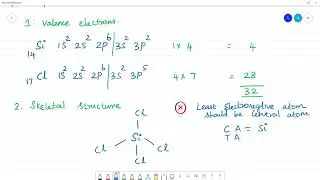 1. Valence electrons
14 Si 1s² 2s² 2p⁶ | 3s² 3p² 1 × 4 = 4
17 Cl 1s² 2s² 2p⁶ | 3s² 3p⁵ 4 × 7 = 28
32
2. Skeletal structure ⓧ Least Electronegative atom
should be central atom
Cl
C A = Si
T A
Si
Cl Cl
Cl